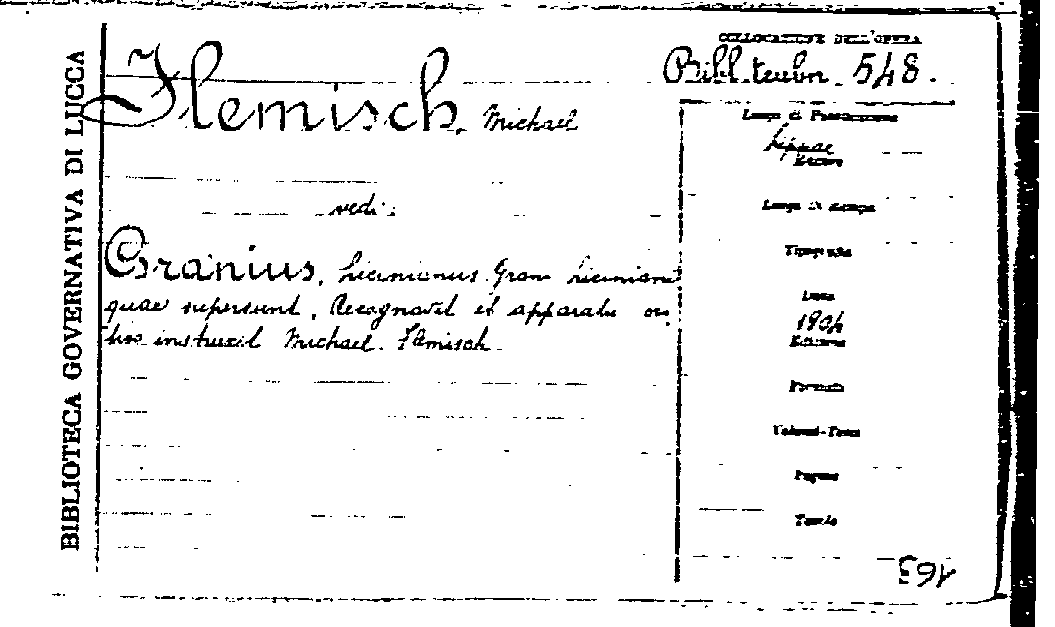 BIBLIOTECA GOVERNATIVA DI LUCCA
COLLOCAZIONE DELL'OPERA
Bibl. teubn. 548.
Flemisch, Michael
vedi:
Granius, Licinianus. Gran Liciniani
quae supersunt, Recognovit et apparatu cri
tico instruxit Michael. Flemisch.
Luogo di Pubblicazione
Lipsiae
Editore
Luogo di stampa
Tipografia
Data
1904
Edizione
Formato
Volumi-Tomi
Pagine
Tavole
163